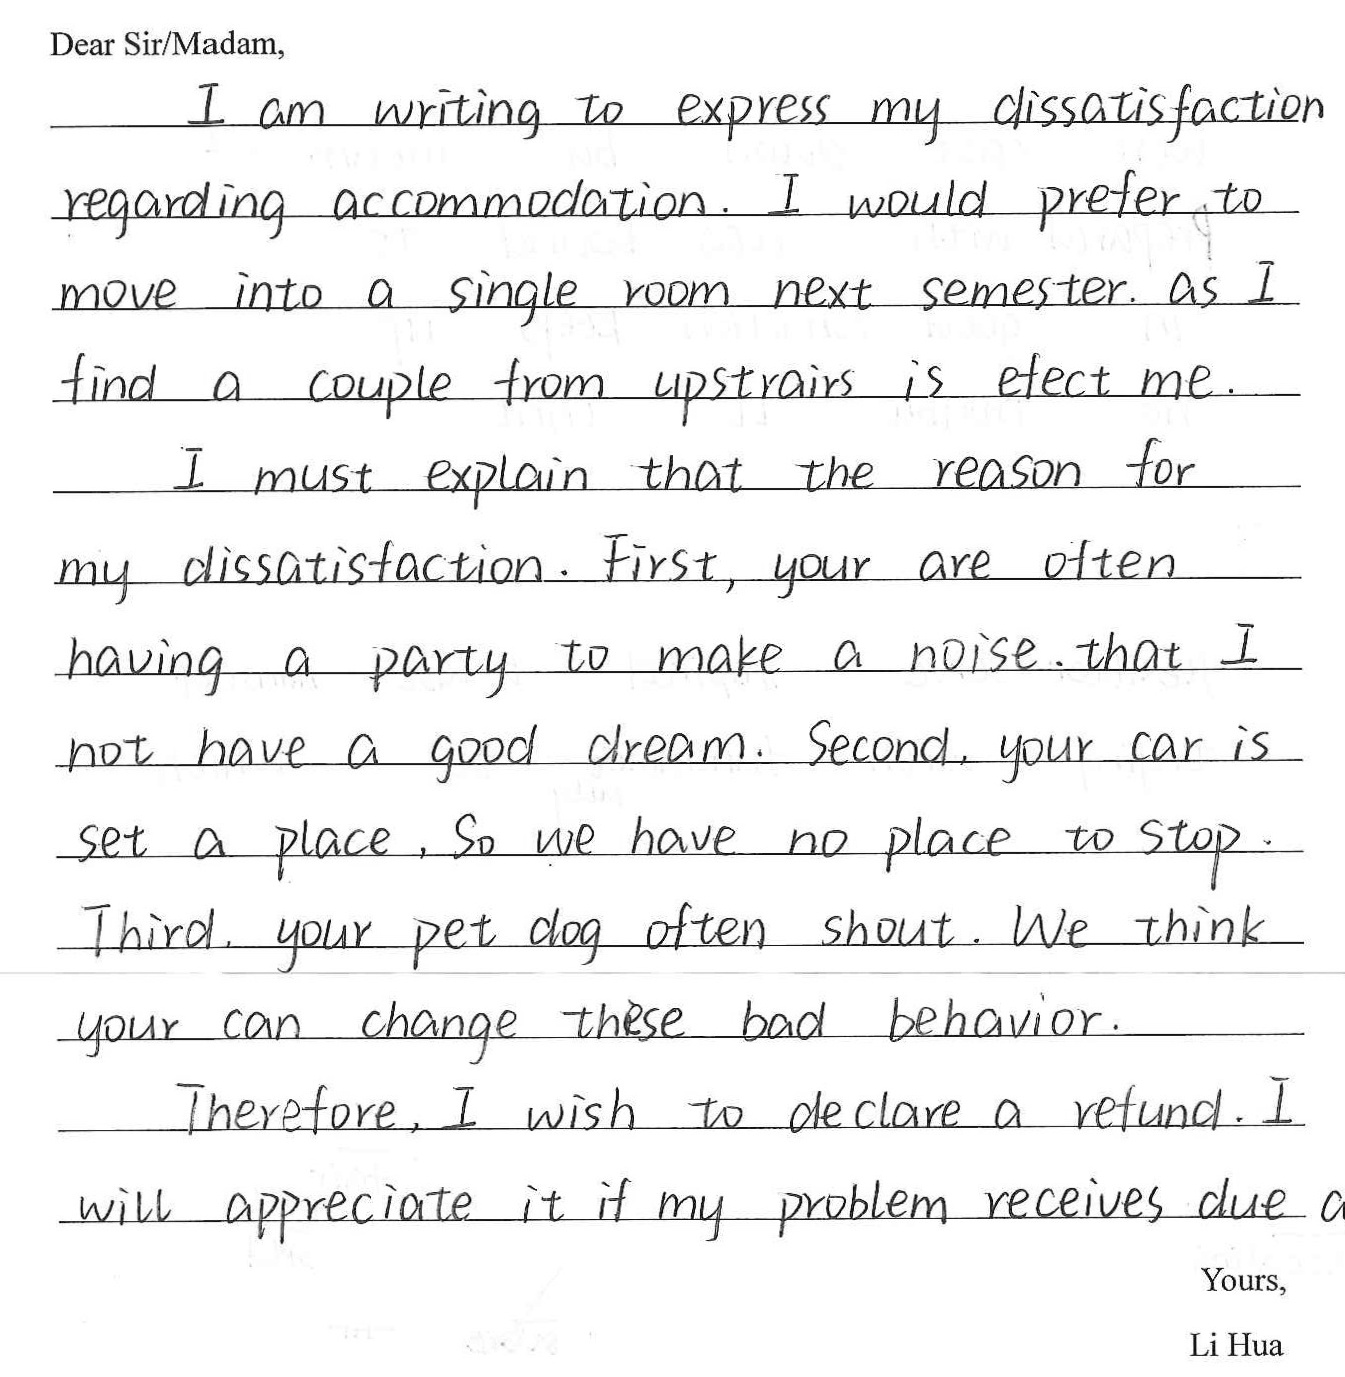 Dear Sir/Madam,
I am writing to express my dissatisfaction
regarding accommodation. I would prefer to
move into a single room next semester. as I
find a couple from upstrairs is efect me.
I must explain that the reason for
my dissatisfaction. First, your are often
having a party to make a noise. that I
not have a good dream. Second, your car is
set a place, So we have no place to stop.
Third, your pet dog often shout. We think
your can change these bad behavior.
Therefore, I wish to declare a refund. I
will appreciate it if my problem receives due
Yours,
Li Hua